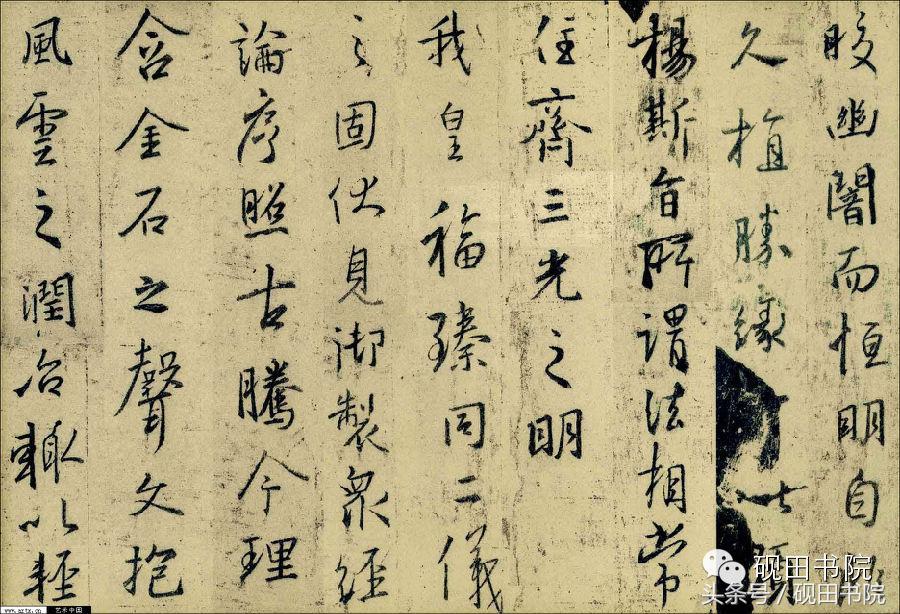 皎幽闇而恒明自
久植勝緣以
揚斯旨所謂法相常
住齊三光之明
我皇福臻同二儀
之固伏見御製衆經
論序照古騰今理
含金石之聲文抱
風雲之潤治輒以輕
砚田书院
头条号／砚田书院
www.artx.cn 艺术中国